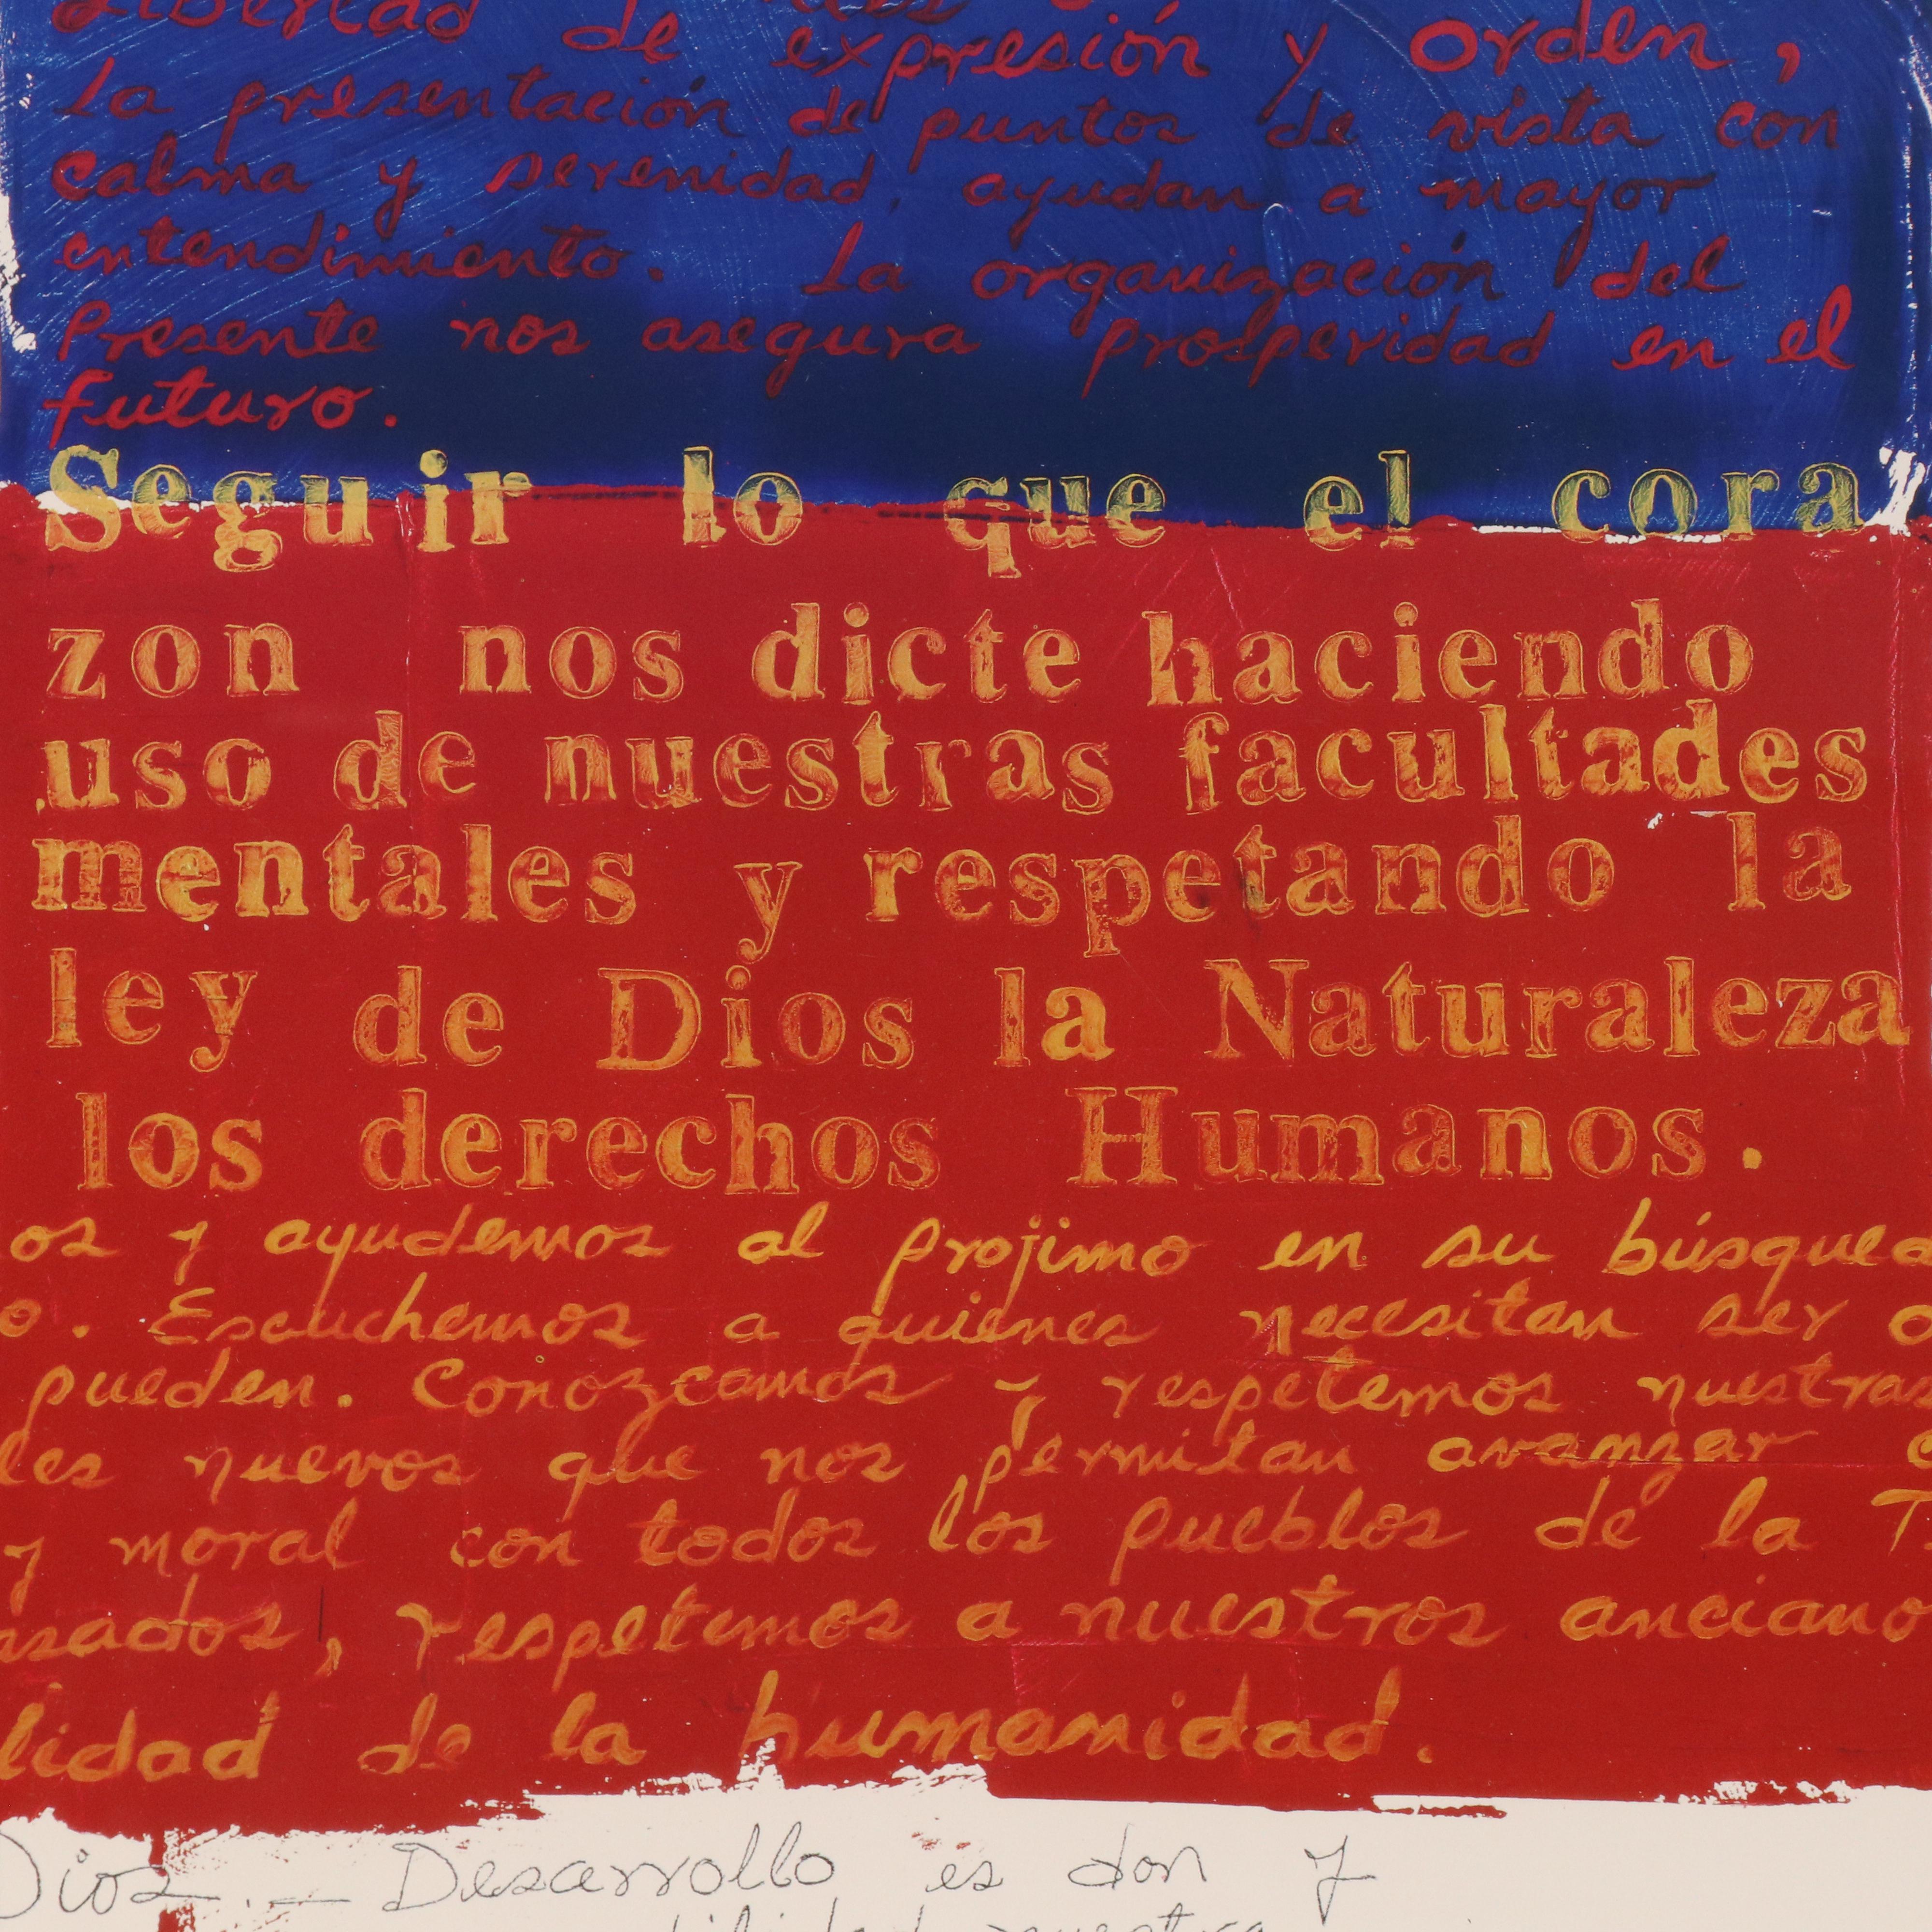 Libertad de expresión y orden,
La presentación de puntos de vista con
calma y serenidad, ayudan a mayor
entendimiento. La organización del
Presente nos asegura prosperidad en el
futuro.
Seguir lo que el cora
zon nos dicte haciendo
uso de nuestras facultades
mentales y respetando la
ley de Dios la Naturaleza
los derechos Humanos.
os y ayudemos al projimo en su búsqued
o. Escuchemos a quienes necesitan ser o
pueden. Conozcamos y respetemos nuestras
les nuevos que nos permitan avanzar
y moral con todos los pueblos de la T
asados, respetemos a nuestros anciano
lidad de la humanidad.
Dios.- Desarrollo es don y